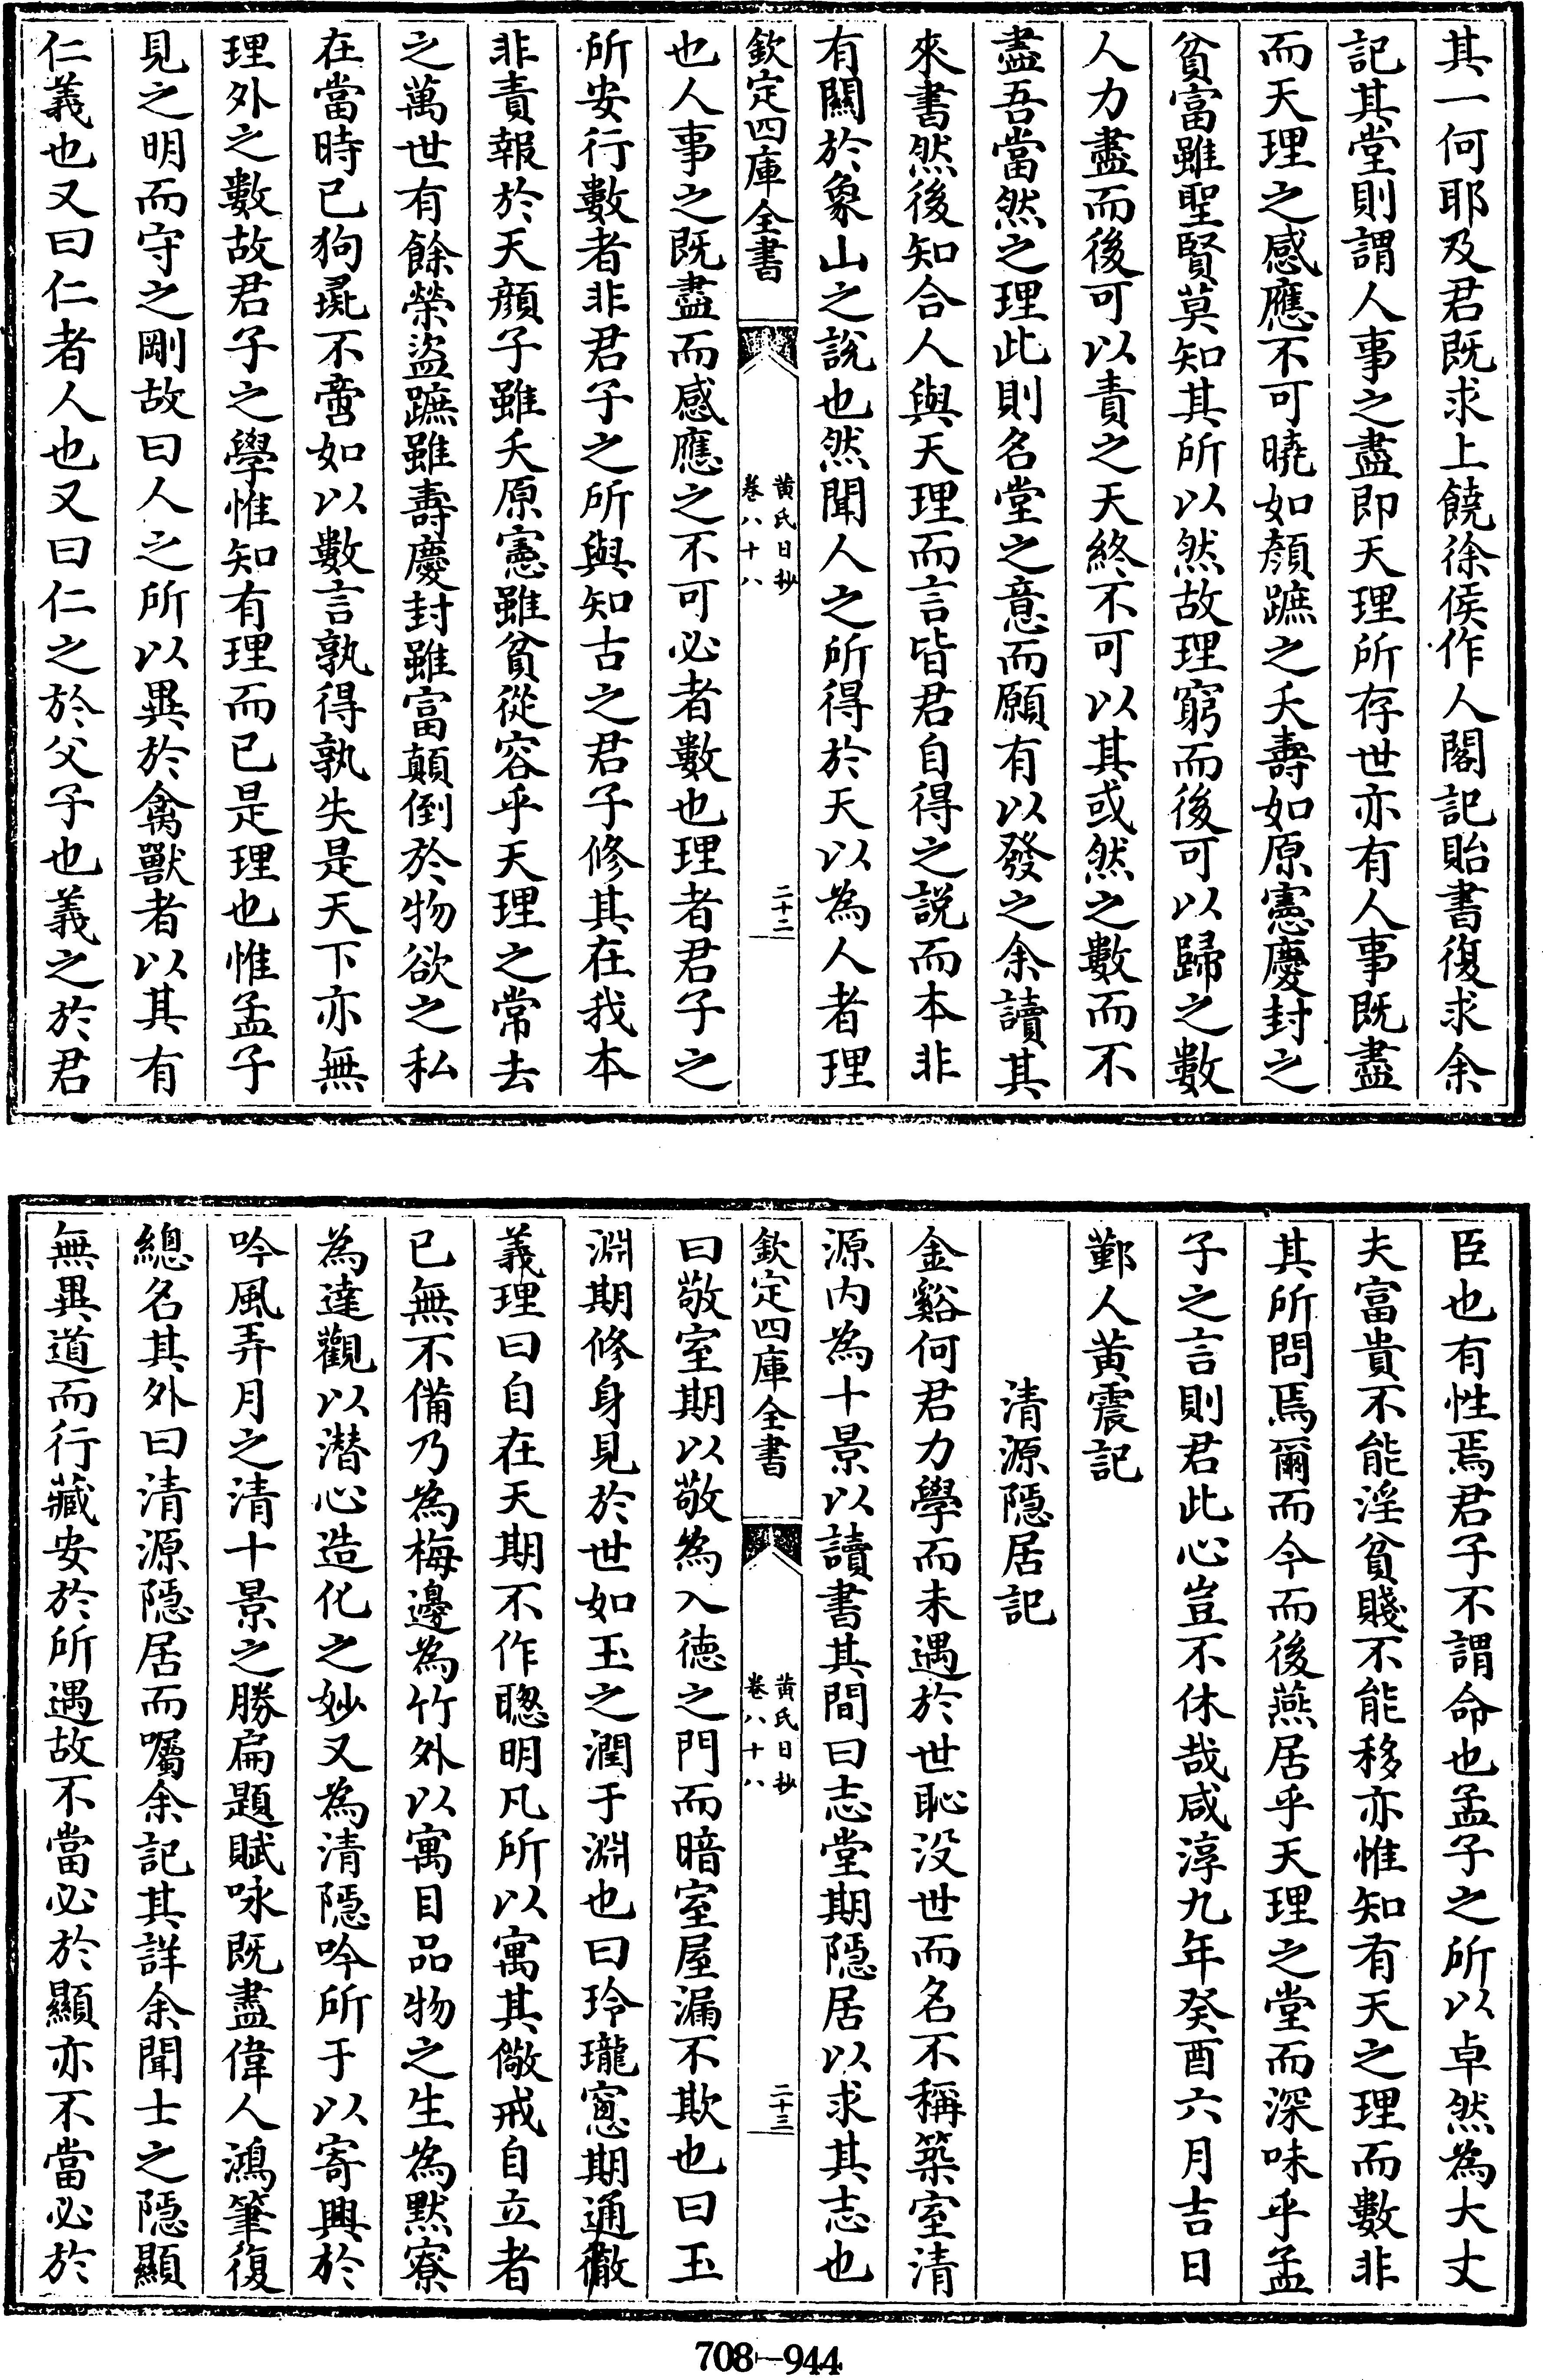 其一何耶及君既求上饒徐侯作人閣記貽書復求余
記其堂則謂人事之盡即天理所存世亦有人事既盡
而天理之感應不可曉如顔蹠之夭壽如原憲慶封之
貧富雖聖賢莫知其所以然故理窮而後可以歸之數
人力盡而後可以責之天終不可以其或然之數而不
盡吾當然之理此則名堂之意而願有以發之余讀其
來書然後知合人與天理而言皆君自得之說而本非
有關於象山之說也然聞人之所得於天以為人者理
欽定四庫全書
黄氏日抄
卷八十八
二十二
也人事之既盡而感應之不可必者數也理者君子之
所安行數者非君子之所與知古之君子修其在我本
非責報於天顔子雖夭原憲雖貧從容乎天理之常去
之萬世有餘榮盜蹠雖壽慶封雖富顛倒於物欲之私
在當時已狗彘不啻如以數言孰得孰失是天下亦無
理外之數故君子之學惟知有理而已是理也惟孟子
見之明而守之剛故曰人之所以異於禽獸者以其有
仁義也又曰仁者人也又曰仁之於父子也義之於君
臣也有性焉君子不謂命也孟子之所以卓然為大丈
夫富貴不能淫貧賤不能移亦惟知有天之理而數非
其所問焉爾而今而後燕居乎天理之堂而深味乎孟
子之言則君此心豈不休哉咸淳九年癸酉六月吉日
鄞人黄震記
清源隱居記
金谿何君力學而未遇於世恥没世而名不稱築室清
源内為十景以讀書其間曰志堂期隱居以求其志也
欽定四庫全書
黄氏日抄
卷八十八
二十三
曰敬室期以敬為入德之門而暗室屋漏不欺也曰玉
淵期修身見於世如玉之潤于淵也曰玲瓏窻期通徹
義理曰自在天期不作聰明凡所以寓其儆戒自立者
已無不備乃為梅邊為竹外以寓目品物之生為黙寮
為達觀以潛心造化之妙又為清隱吟所于以寄興於
吟風弄月之清十景之勝扁題賦咏既盡偉人鴻筆復
總名其外曰清源隱居而囑余記其詳余聞士之隱顯
無異道而行藏安於所遇故不當必於顯亦不當必於
708—944